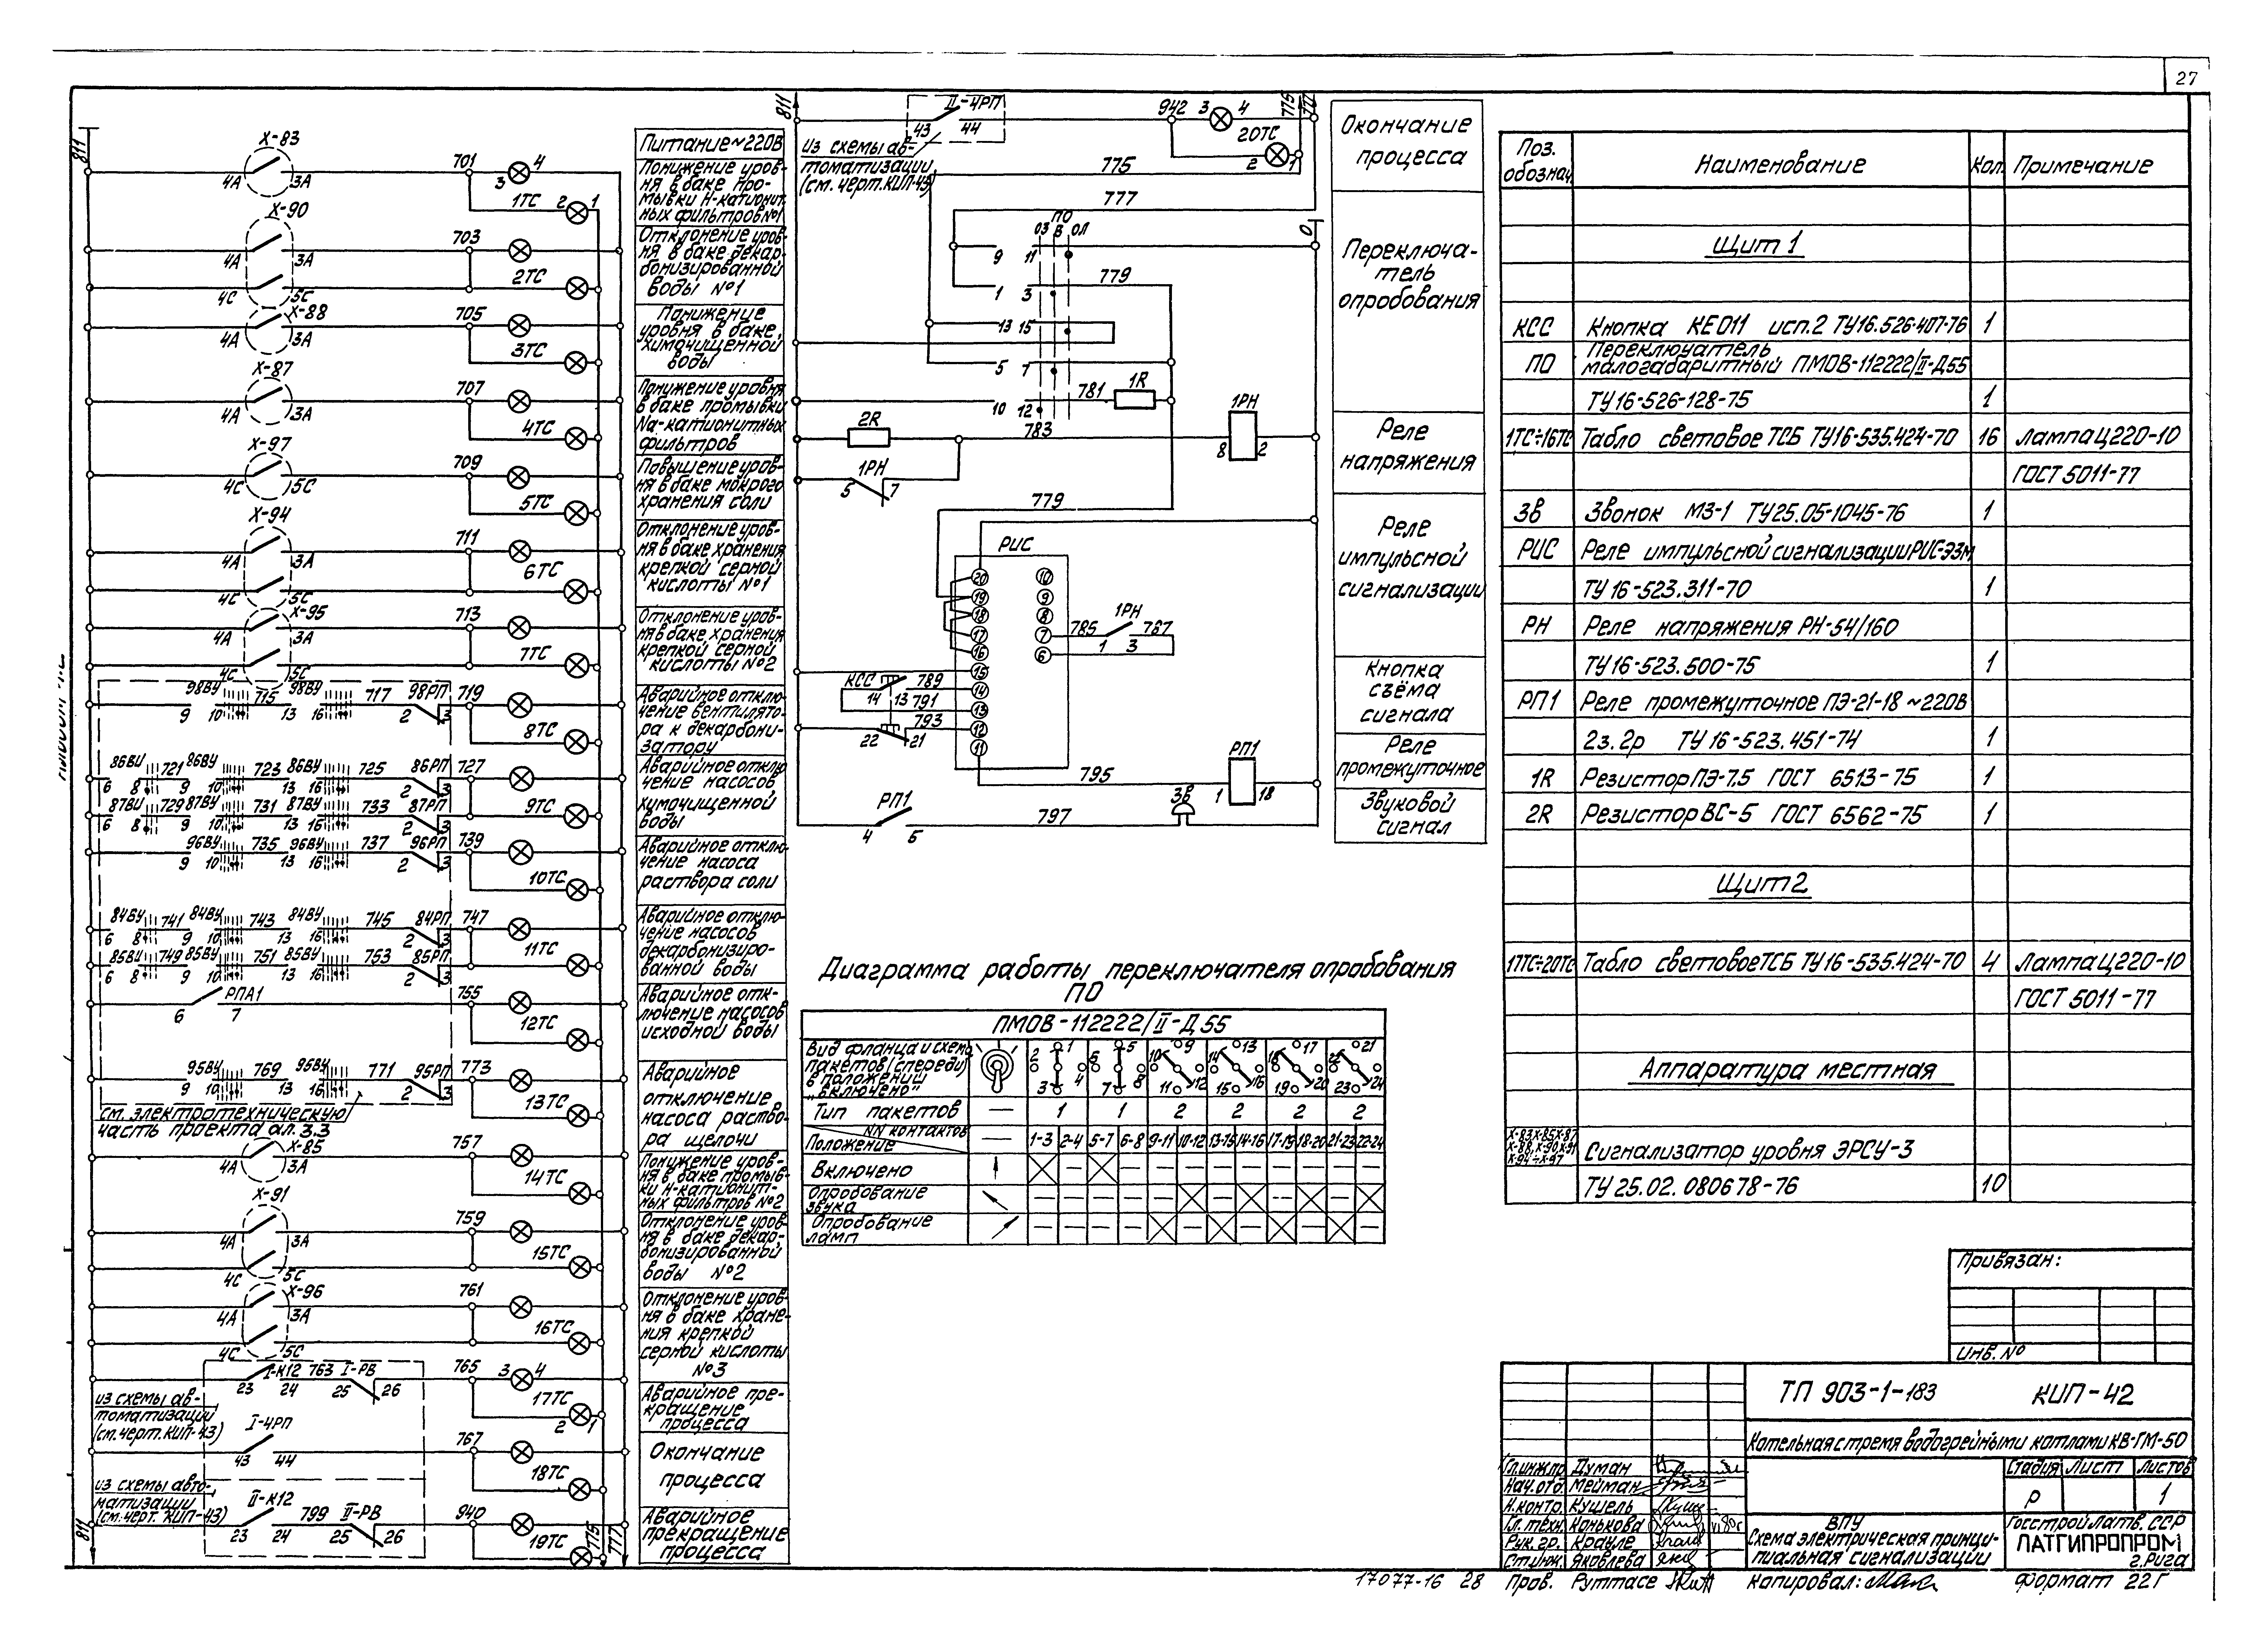 27
811
Х-83
4А 3А
701
3 4
1ТС 2 1
Питание ~220В
Понижение уров-
ня в баке про-
мывки Н-катионит-
ных фильтров №1
Х-90
4А 3А
703
4С 5С
2ТС
Отклонение уров-
ня в баке декар-
бонизированной
воды №1
Х-88
4А 3А
705
3ТС
Понижение
уровня в баке
химочищенной
воды
Х-87
4А 3А
707
4ТС
Понижение уровня
в баке промывки
Na-катионитных
фильтров
Х-97
4С 5С
709
5ТС
Повышение уров-
ня в баке мокрого
хранения соли
Х-94
4А 3А
711
4С 5С
6ТС
Отклонение уров-
ня в баке хранения
крепкой серной
кислоты №1
Х-95
4А 3А
713
4С 5С
7ТС
Отклонение уров-
ня в баке хранения
крепкой серной
кислоты №2
98ВУ 715 98ВУ 717 98РП 719
9 10 13 16 2 3
8ТС
Аварийное отклю-
чение вентилято-
ра к декарбони-
затору
86ВУ 721 86ВУ 723 86ВУ 725 86РП 727
6 8 9 10 13 16 2 3
87ВУ 729 87ВУ 731 87ВУ 733 87РП
6 8 9 10 13 16 2 3
9ТС
Аварийное отклю-
чение насосов
химочищенной
воды
96ВУ 735 96ВУ 737 96РП 739
9 10 13 16 2 3
10ТС
Аварийное отклю-
чение насоса
раствора соли
84ВУ 741 84ВУ 743 84ВУ 745 84РП 747
6 8 9 10 13 16 2 3
85ВУ 749 85ВУ 751 85ВУ 753 85РП
6 8 9 10 13 16 2 3
11ТС
Аварийное отклю-
чение насосов
декарбонизиро-
ванной воды
РПА1
6 7
755
12ТС
Аварийное отк-
лючение насосов
исходной воды
95ВУ 769 95ВУ 771 95РП 773
9 10 13 16 2 3
13ТС
Аварийное
отключение
насоса раство-
ра щелочи
см. электротехническую
часть проекта ал. 3.3
Х-85
4А 3А
757
14ТС
Понижение уров-
ня в баке промыв-
ки Н-катионит-
ных фильтров №2
Х-91
4А 3А
759
4С 5С
15ТС
Отклонение уров-
ня в баке декар-
бонизированной
воды №2
Х-96
4А 3А
761
4С 5С
16ТС
Отклонение уров-
ня в баке хране-
ния крепкой
серной кислоты
№3
I-К12 763 I-РВ
23 24 25 26
765
3 4
17ТС
2 1
Аварийное пре-
кращение
процесса
из схемы ав-
томатизации
(см. черт. КИП-43)
I-4РП
43 44
767
18ТС
Окончание
процесса
из схемы авто-
матизации
(см. черт. КИП-43)
II-К12 799 II-РВ
23 24 25 26
940
19ТС
Аварийное
прекращение
процесса
811
775
777
811
II-4РП
43 44
942 3 4
20ТС
2 1
775
777
из схемы ав-
томатизации
(см. черт. КИП-43)
Окончание
процесса
775
777
0
ПО
ОЗ В ОЛ
9 11
1 3
779
13 15
5 7
10 12
781
1R
Переключа-
тель
опробования
2R
783
1РН
8 2
1РН
5 7
Реле
напряжения
779
РИС
20 10
19 9
18 8
17 7
16 6
15
14
13
12
11
785 1РН 787
1 3
Реле
импульсной
сигнализации
КСС
14 13
789
791
793
22 21
Кнопка
съёма
сигнала
795
РП1
1 18
Реле
промежуточное
РП1
4 6
797
Зв
Звуковой
сигнал
Диаграмма работы переключателя опробования
ПО
ПМОВ-112222/II-Д55
Вид фланца и схема
пакетов (спереди)
в положении
„включено"
2 1 3 4
6 5 7 8
10 9 11 12
14 13 15 16
18 17 19 20
22 21 23 24
Тип пакетов — 1 1 2 2 2 2
NN контактов
Положение — 1-3 2-4 5-7 6-8 9-11 10-12 13-15 14-16 17-19 18-20 21-23 22-24
Включено
Опробование
звука
Опробование
ламп
Поз.
обознач. Наименование Кол. Примечание
Щит 1
КСС Кнопка КЕ011 исп.2 ТУ16.526-407-76 1
ПО Переключатель
малогабаритный ПМОВ-112222/II-Д55
ТУ16-526-128-75 1
1ТС÷16ТС Табло световое ТСБ ТУ16-535.424-70 16 Лампа Ц220-10
ГОСТ 5011-77
Зв Звонок МЗ-1 ТУ25.05-1045-76 1
РИС Реле импульсной сигнализации РИС-Э3М
ТУ 16-523.311-70 1
РН Реле напряжения РН-54/160
ТУ16-523.500-75 1
РП1 Реле промежуточное ПЭ-21-18 ~220В
2з.2р ТУ 16-523.451-74 1
1R Резистор ПЭ-7.5 ГОСТ 6513-75 1
2R Резистор ВС-5 ГОСТ 6562-75 1
Щит 2
17ТС÷20ТС Табло световое ТСБ ТУ16-535.424-70 4 Лампа Ц220-10
ГОСТ 5011-77
Аппаратура местная
Х-83 Х-85 Х-87
Х-88, Х-90 Х-91
Х-94÷Х-97
Сигнализатор уровня ЭРСУ-3
ТУ 25.02.080678-76 10
Привязан:
Инв. №
ТП 903-1-183 КИП-42
Котельная с тремя водогрейными котлами КВ-ГМ-50
Гл.инж.пр. Думан
Нач.отд. Мейман
Н.контр. Кушель
Гл. техн. Конькова VI 80г
Рук. гр. Крауле
Ст.инж. Яковлева
Стадия Лист Листов
Р 1
ВПУ
Схема электрическая принци-
пиальная сигнализации
Госстрой Латв. ССР
ЛАТГИПРОПРОМ
г. Рига
17077-16 28
Пров. Руттасе
Копировал:
Формат 22Г